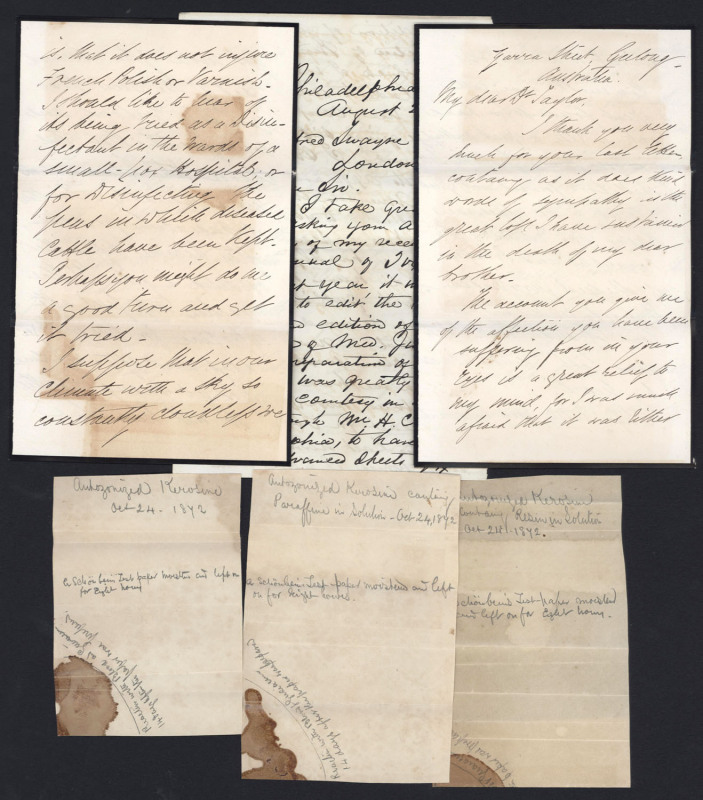 is, that it does not injure
French Polish or Varnish.
I should like to hear of
its being tried as a Disin-
fectant in the wards of a
small-pox Hospital, or
for Disinfecting the
pens in which diseased
Cattle have been kept.
Perhaps you might do me
a good turn and get
it tried.
I suppose that in our
Climate with a sky, so
constantly cloudless we
Philadelphia
August 2
tred Swayne
London
Sir.
I take gre
sking you a
of my rece
nual of J
st year it w
to edit the
edition of
a Med. Ju
paration of
was greatly
courtesy in
ugh Mr. H. C
phia, to ha
dvanced Sheets
Yarra Street Geelong
Australia
My dear Dr Taylor.
I thank you very
much for your last letter
containing as it does kind
words of sympathy in the
great loss I have sustained
in the death of my dear
brother.
The account you give me
of the affection you have been
suffering from in your
eyes is a great relief to
my mind, for I was much
afraid that it was either
Autozonized Kerosine
Oct 24. 1872
a Schönbein's Test paper moisten and left on
for Eight hours
Reaction with
14 days after the paper was prepared.
Autozonized Kerosine containg
Paraffine in Solution - Oct 24, 1872
a Schönbein's Test-paper moistened and left
on for Eight hours.
Reaction with
14 days after the paper was prepared
utozonized Kerosine
containing Resin in Solution
Oct 28 1872.
Schönbein's Test-paper moistened
and left on for Eight hours.
paper was prepared